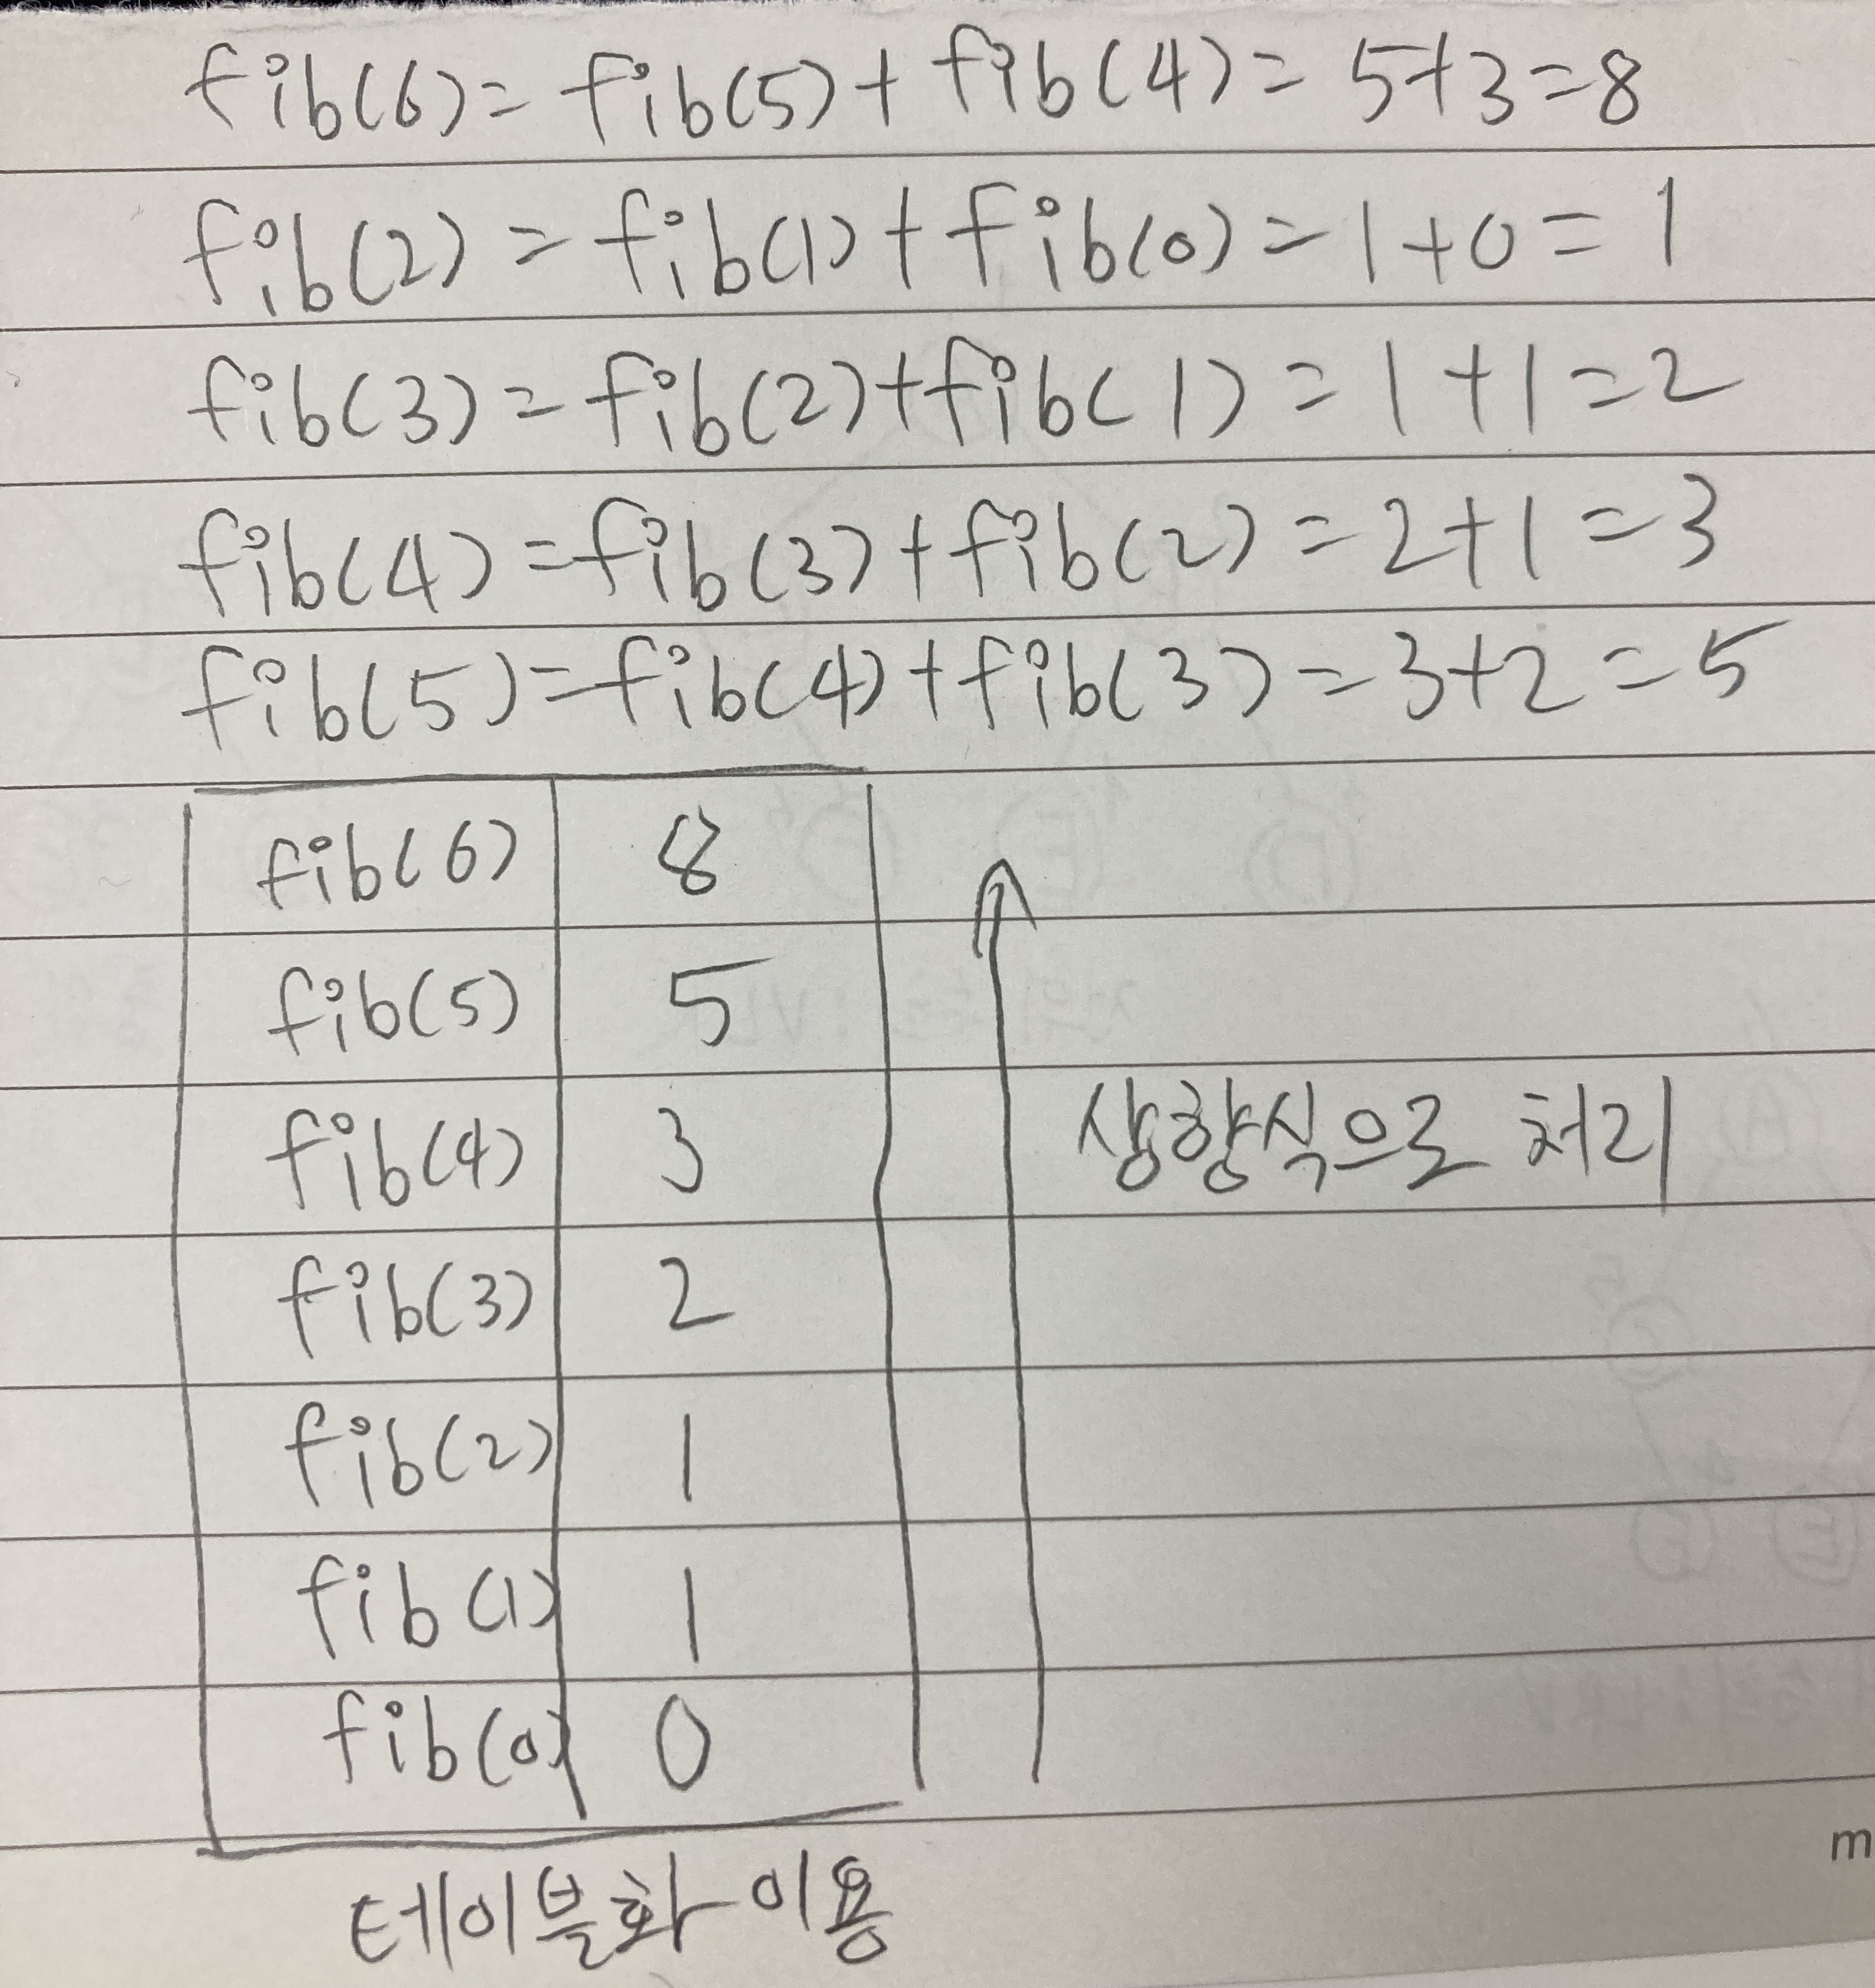 fib(6) = fib(5) + fib(4) = 5+3 = 8
fib(2) = fib(1) + fib(0) = 1+0 = 1
fib(3) = fib(2) + fib(1) = 1+1 = 2
fib(4) = fib(3) + fib(2) = 2+1 = 3
fib(5) = fib(4) + fib(3) = 3+2 = 5
fib(6) 8
fib(5) 5
fib(4) 3
상향식으로 처리
fib(3) 2
fib(2) 1
fib(1) 1
fib(0) 0
m
테이블화 이용